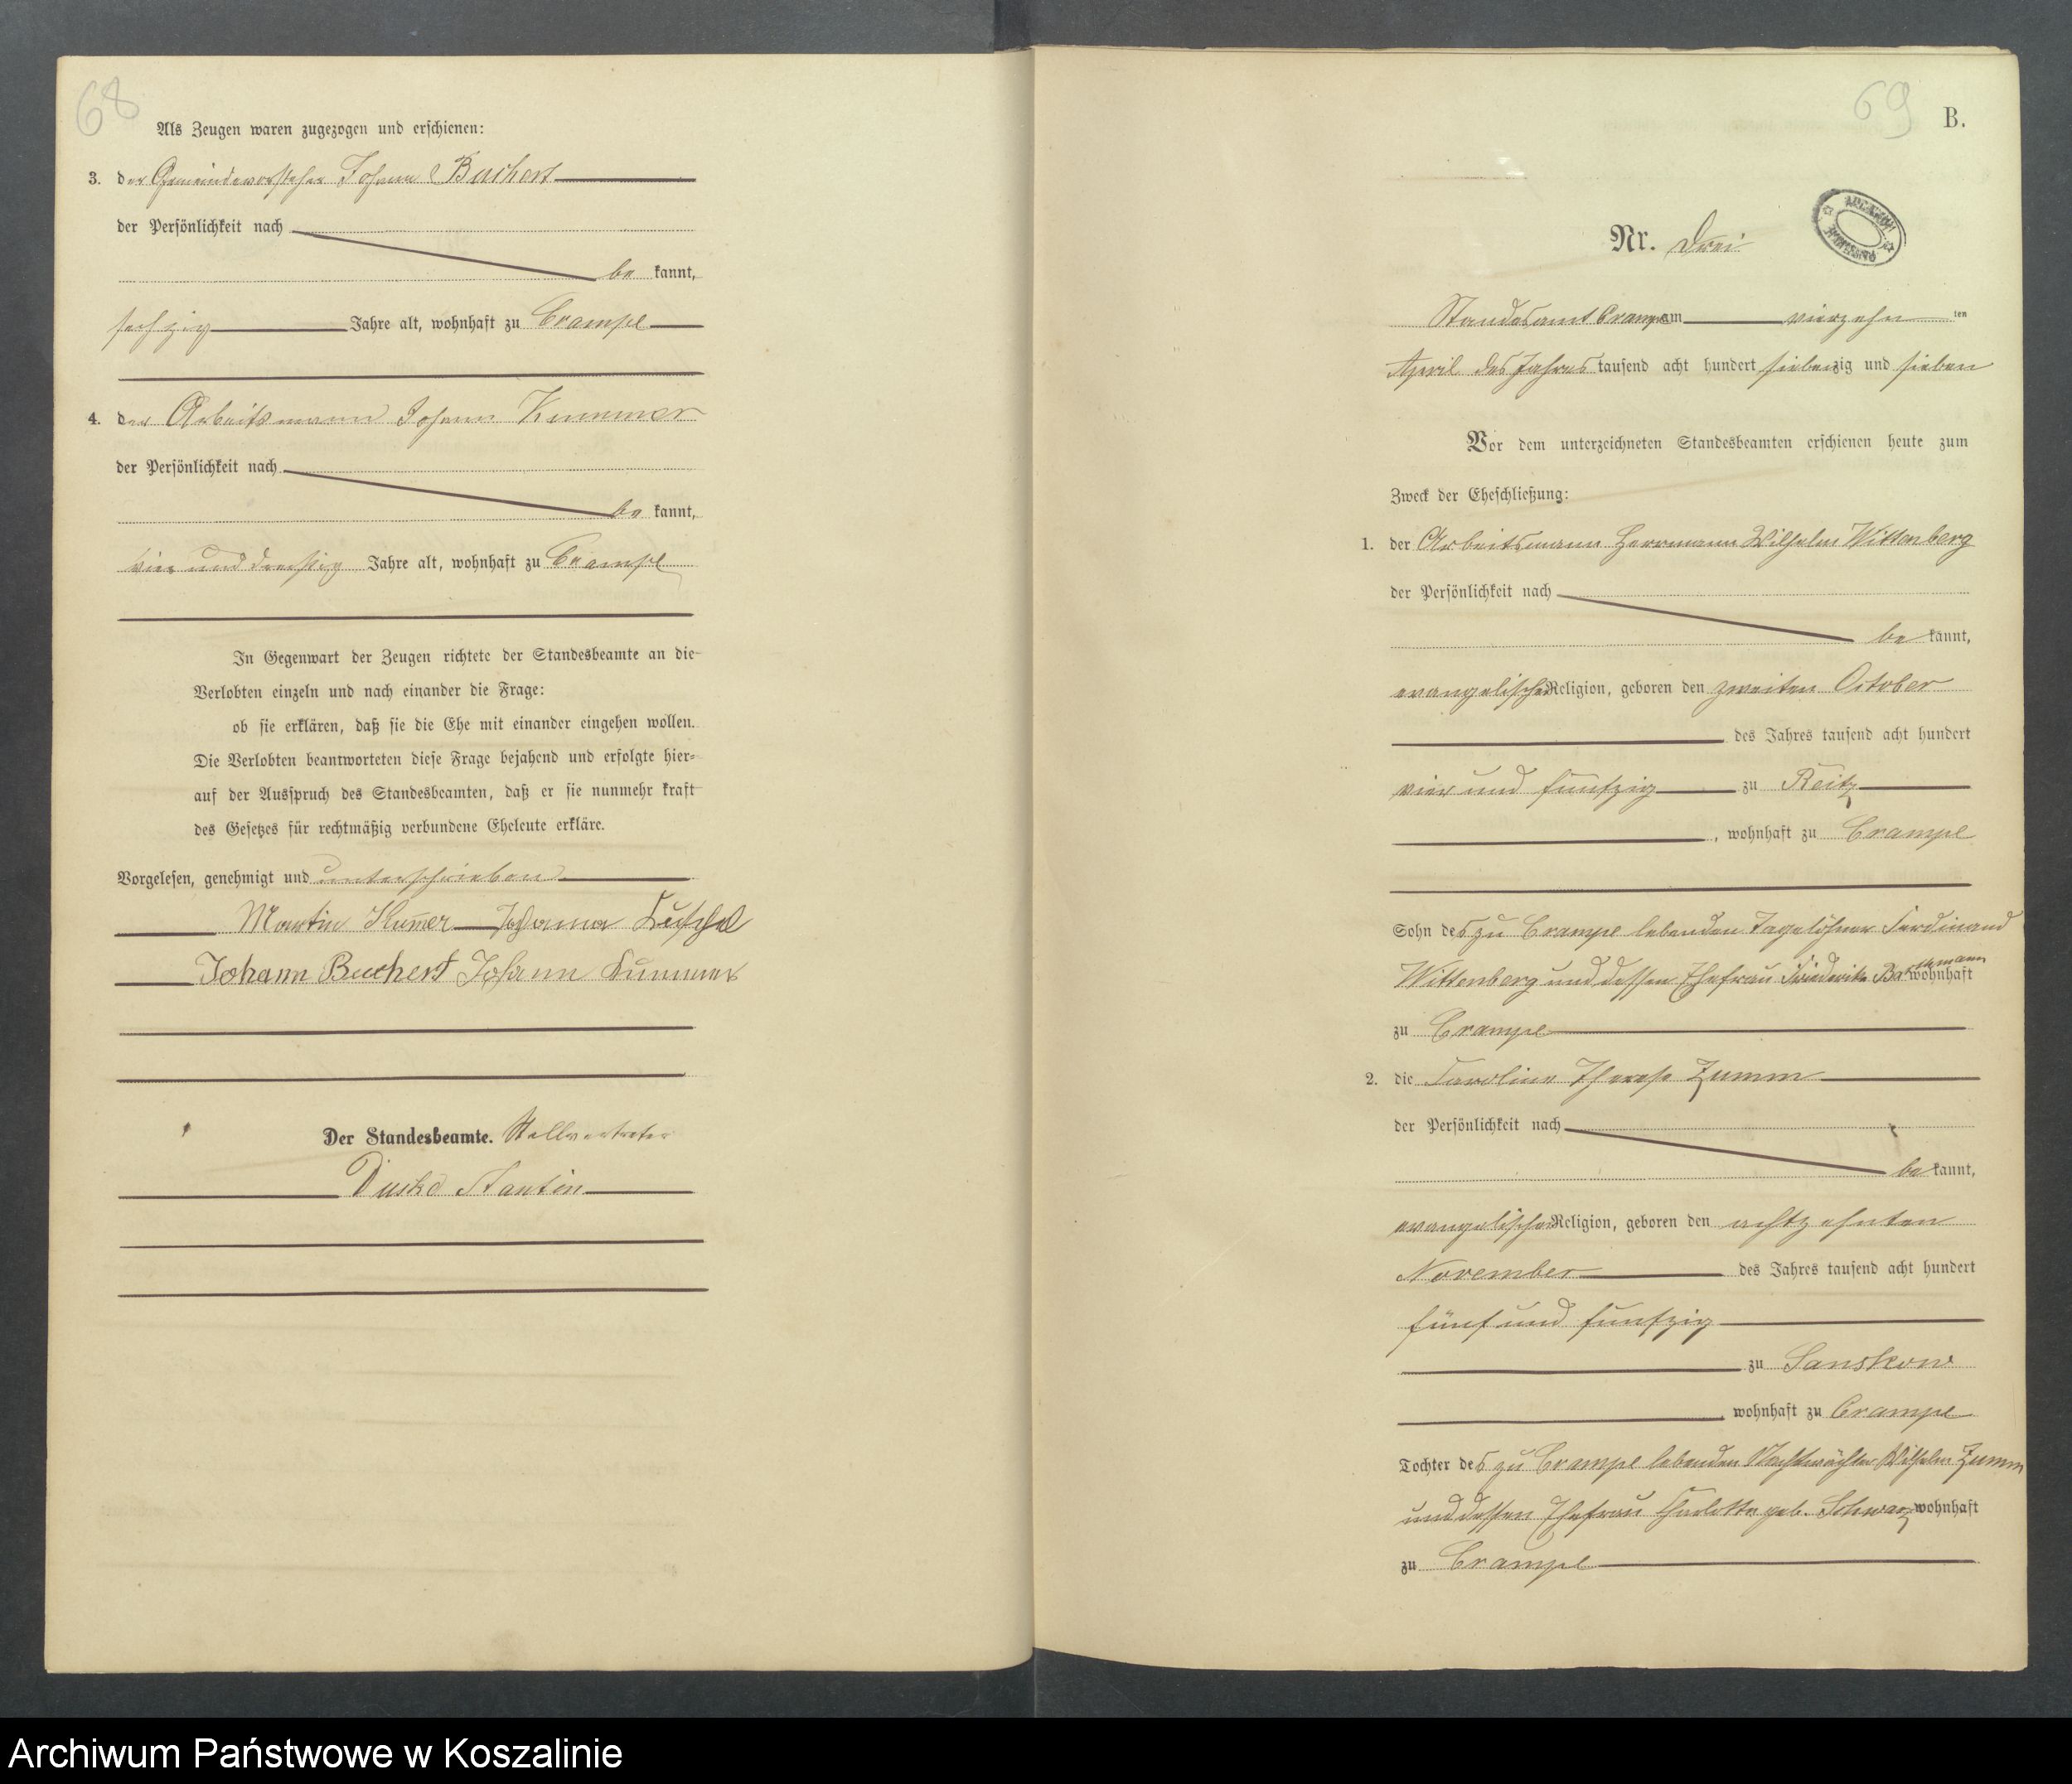 68
Als Zeugen waren zugezogen und erschienen:
3. der Gemeindevorsteher Johann Buchert
der Persönlichkeit nach
be kannt,
sechzig Jahre alt, wohnhaft zu Crampe
4. der Arbeitsmann Johann Kummer
der Persönlichkeit nach
be kannt,
vier und dreißig Jahre alt, wohnhaft zu Crampe
In Gegenwart der Zeugen richtete der Standesbeamte an die
Verlobten einzeln und nach einander die Frage:
ob sie erklären, daß sie die Ehe mit einander eingehen wollen.
Die Verlobten beantworteten diese Frage bejahend und erfolgte hier-
auf der Ausspruch des Standesbeamten, daß er sie nunmehr kraft
des Gesetzes für rechtmäßig verbundene Eheleute erkläre.
Vorgelesen, genehmigt und unterschrieben
Martin Kummer
Johann Buchert Johann Kummer
Der Standesbeamte. Stellvertreter
69 B.
Nr. Drei
Standesamt Crampe am vierzehn ten
April des Jahres tausend acht hundert siebenzig und sieben
Vor dem unterzeichneten Standesbeamten erschienen heute zum
Zweck der Eheschließung:
1. der Arbeitsmann Herrmann Wilhelm Wittenberg
der Persönlichkeit nach
be kannt,
evangelischer Religion, geboren den zweiten October
des Jahres tausend acht hundert
vier und funfzig zu Reitz
, wohnhaft zu Crampe
Sohn des zu Crampe lebenden Tagelöhner Ferdinand
Wittenberg und dessen Ehefrau Friederike Barthmann wohnhaft
zu Crampe
2. die Caroline Therese Zumm
der Persönlichkeit nach
be kannt,
evangelischer Religion, geboren den achtzehnten
November des Jahres tausend acht hundert
fünf und funfzig
zu Sanskow
, wohnhaft zu Crampe
Tochter des zu Crampe lebenden Nachtwächter Wilhelm Zumm
und dessen Ehefrau Charlotte geb. Schwarz wohnhaft
zu Crampe
Archiwum Państwowe w Koszalinie